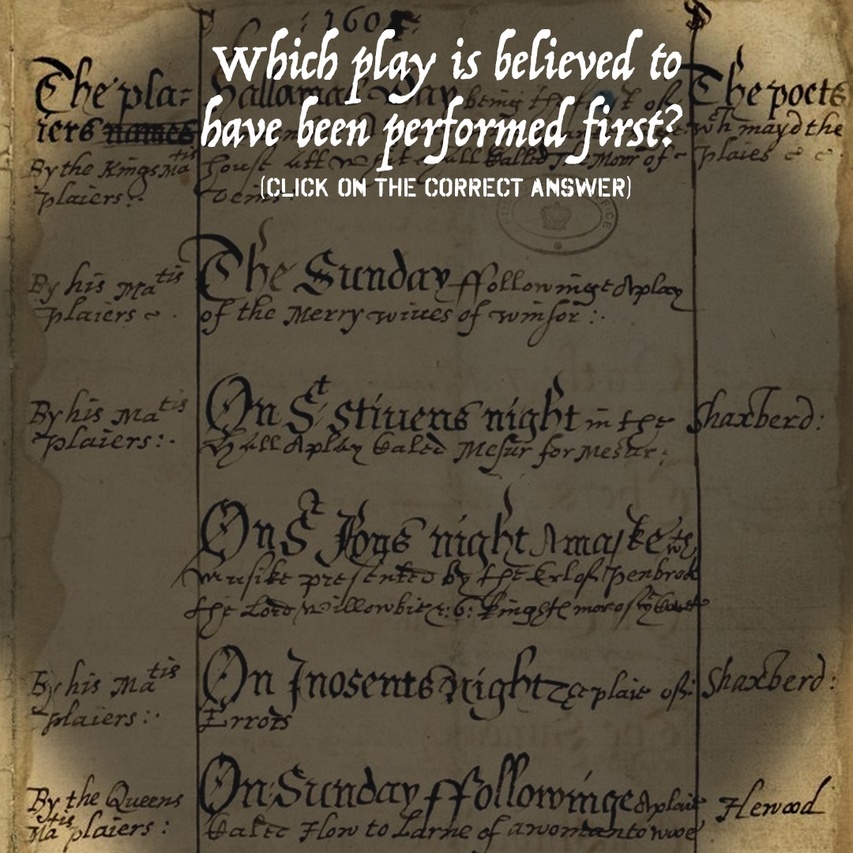 Which play is believed to
have been performed first?
(CLICK ON THE CORRECT ANSWER)
1605
The pla= Hallamas Day being the first of The poets
iers names wch mayd the
By the Kings Matis house att calld The Moor of plaies
plaiers:
The Sunday ffollowinge A play
By his Matis
plaiers of the Merry wiues of winsor :
On St stiuens night in the Shaxberd:
By his Matis
plaiers: Hall A play Caled Mesur for Mesur:
On St Jons night A maske wth
musike presented by the Erl of Penbrok
the Lord Willowbie & 6 Knights more of ye Court
On Inosents Night The plaie of Shaxberd:
By his Matis
plaiers: Errors
On Sunday ffollowinge A plaie Hewood
By the Queens
Matis plaiers: Caled How to Larne of a woman to wooe